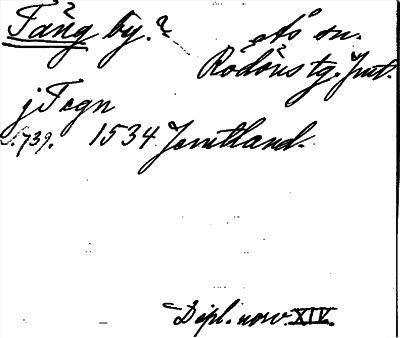 Tång by. ? Ås sn.
Rödöns tg. Jmt.
j Togn
s. 739. 1534 Jemtland.
Dipl. norv. XIV.